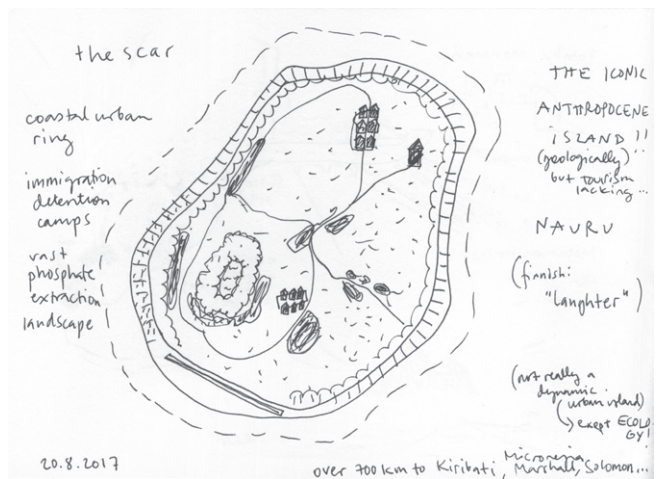 the scar
coastal urban
ring
immigration
detention
camps
vast
phosphate
extraction
landscape
20.8.2017
THE ICONIC
ANTHROPOCENE
ISLAND !!
(geologically)
but tourism
lacking...
NAURU
(finnish:
"laughter")
(not really a
dynamic
urban island)
↳ exept ECOLO
GY!
Micronesia,
over 700 km to Kiribati, Marshall, Solomon...